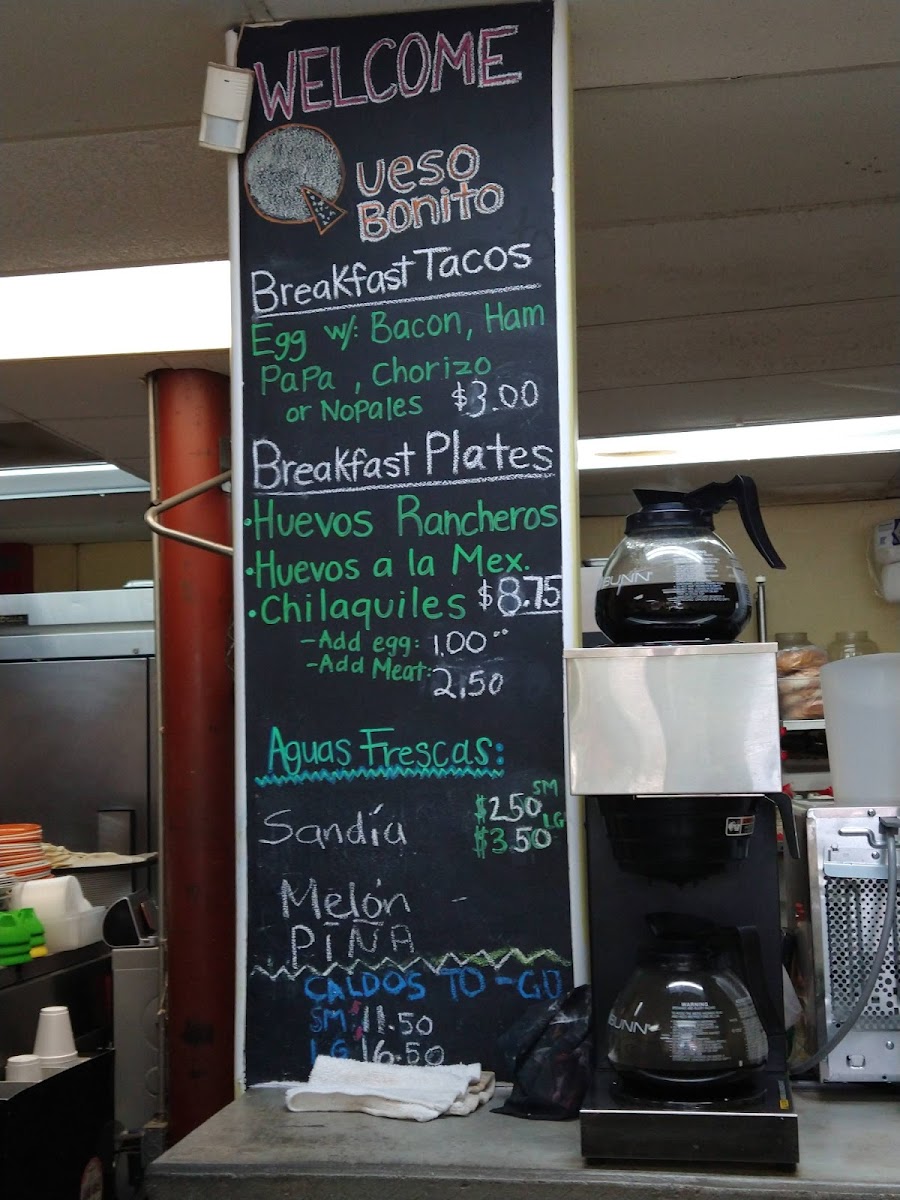 WELCOME
ueso
Bonito
Breakfast Tacos
Egg w/: Bacon, Ham
Papa, Chorizo
or Nopales $3.00
Breakfast Plates
•Huevos Rancheros
•Huevos a la Mex.
•Chilaquiles $8.75
-Add egg: 1.00
-Add Meat: 2.50
Aguas Frescas:
Sandía $2.50 SM
$3.50 LG
Melón
PIÑA
CALDOS TO-GO
SM: 11.50
LG 16.50
BUNN
BUNN
WARNING